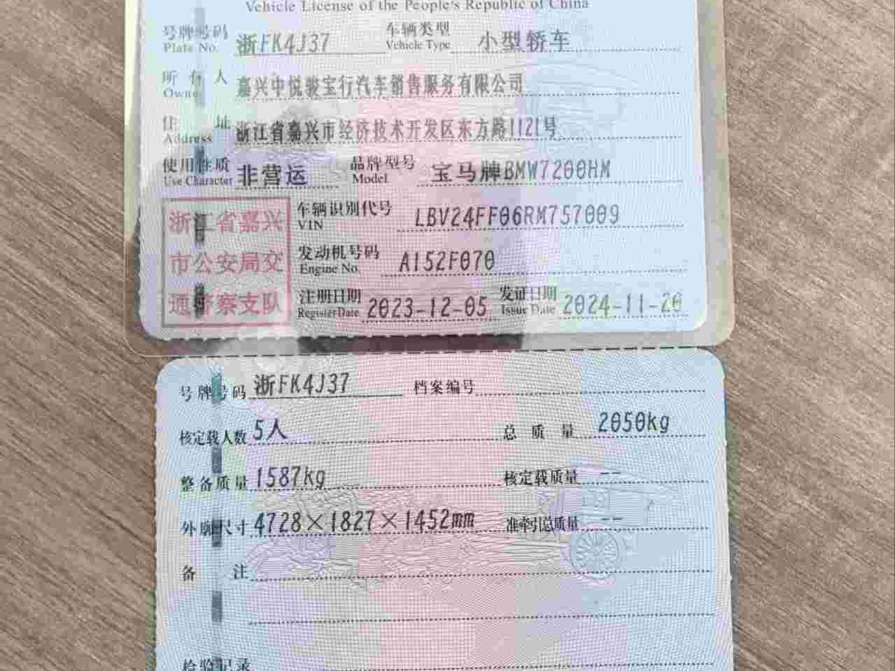 Vehicle License of the People's Republic of China
号牌号码 浙FK4J37 车辆类型 小型轿车
Plate No. Vehicle Type
所有人 嘉兴中悦骏宝行汽车销售服务有限公司
Owner
住址 浙江省嘉兴市经济技术开发区东方路1121号
Address
使用性质 非营运 品牌型号 宝马牌BMW7200HM
Use Character Model
浙江省嘉兴市公安局交通警察支队
车辆识别代号 LBV24FF06RM757009
VIN
发动机号码 A152F070
Engine No.
注册日期 2023-12-05 发证日期 2024-11-20
Register Date Issue Date
号牌号码 浙FK4J37 档案编号
核定载人数 5人 总质量 2050kg
整备质量 1587kg 核定载质量 --
外廓尺寸 4728×1827×1452mm 准牵引总质量 --
备注
检验记录